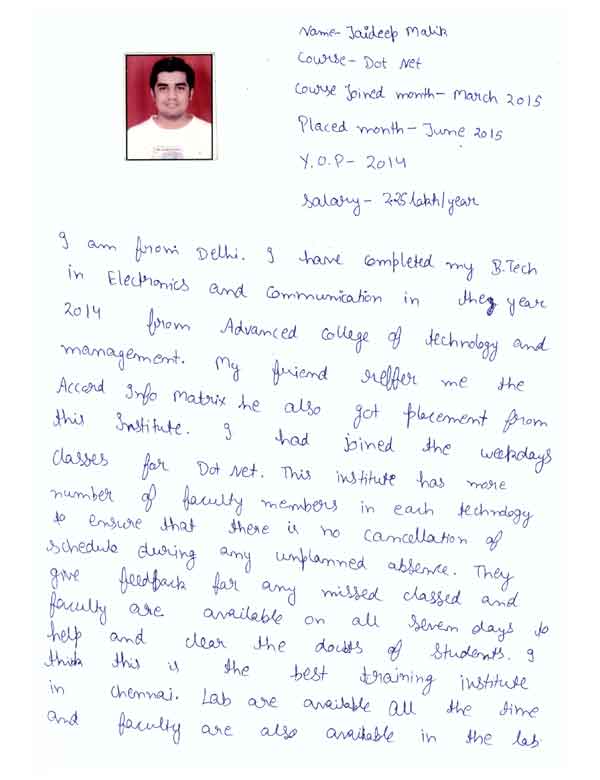 Name- Jaideep Malik
Course- Dot Net
Course Joined month- March 2015
Placed month- June 2015
Y.O.P- 2014
Salary- 2.25 lakh/year
I am from Delhi. I have completed my B.Tech
in Electronics and Communication in the year
2014 from Advanced College of technology and
management. My friend reffer me the
Accord Info Matrix he also got placement from
this Institute. I had joined the weekdays
classes for Dot Net. This institute has more
number of faculty members in each technology
to ensure that there is no cancellation of
schedule during any unplanned absence. They
give feedback for any missed classed and
faculty are available on all seven days to
help and clear the doubts of students. I
think this is the best training institute
in Chennai. Lab are available all the time
and faculty are also available in the lab